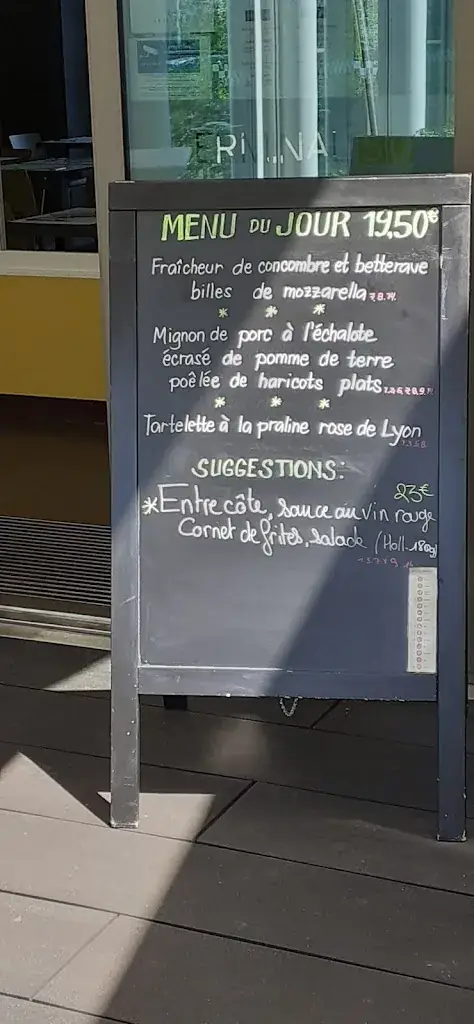 MENU DU JOUR 19,50€
Fraîcheur de concombre et betterave
billes de mozzarella
* * *
Mignon de porc à l'échalote
écrasé de pomme de terre
poêlée de haricots plats
* * *
Tartelette à la praline rose de Lyon
SUGGESTIONS:
23€
*Entrecôte, sauce au vin rouge
Cornet de frites, salade (Holl. 180g)